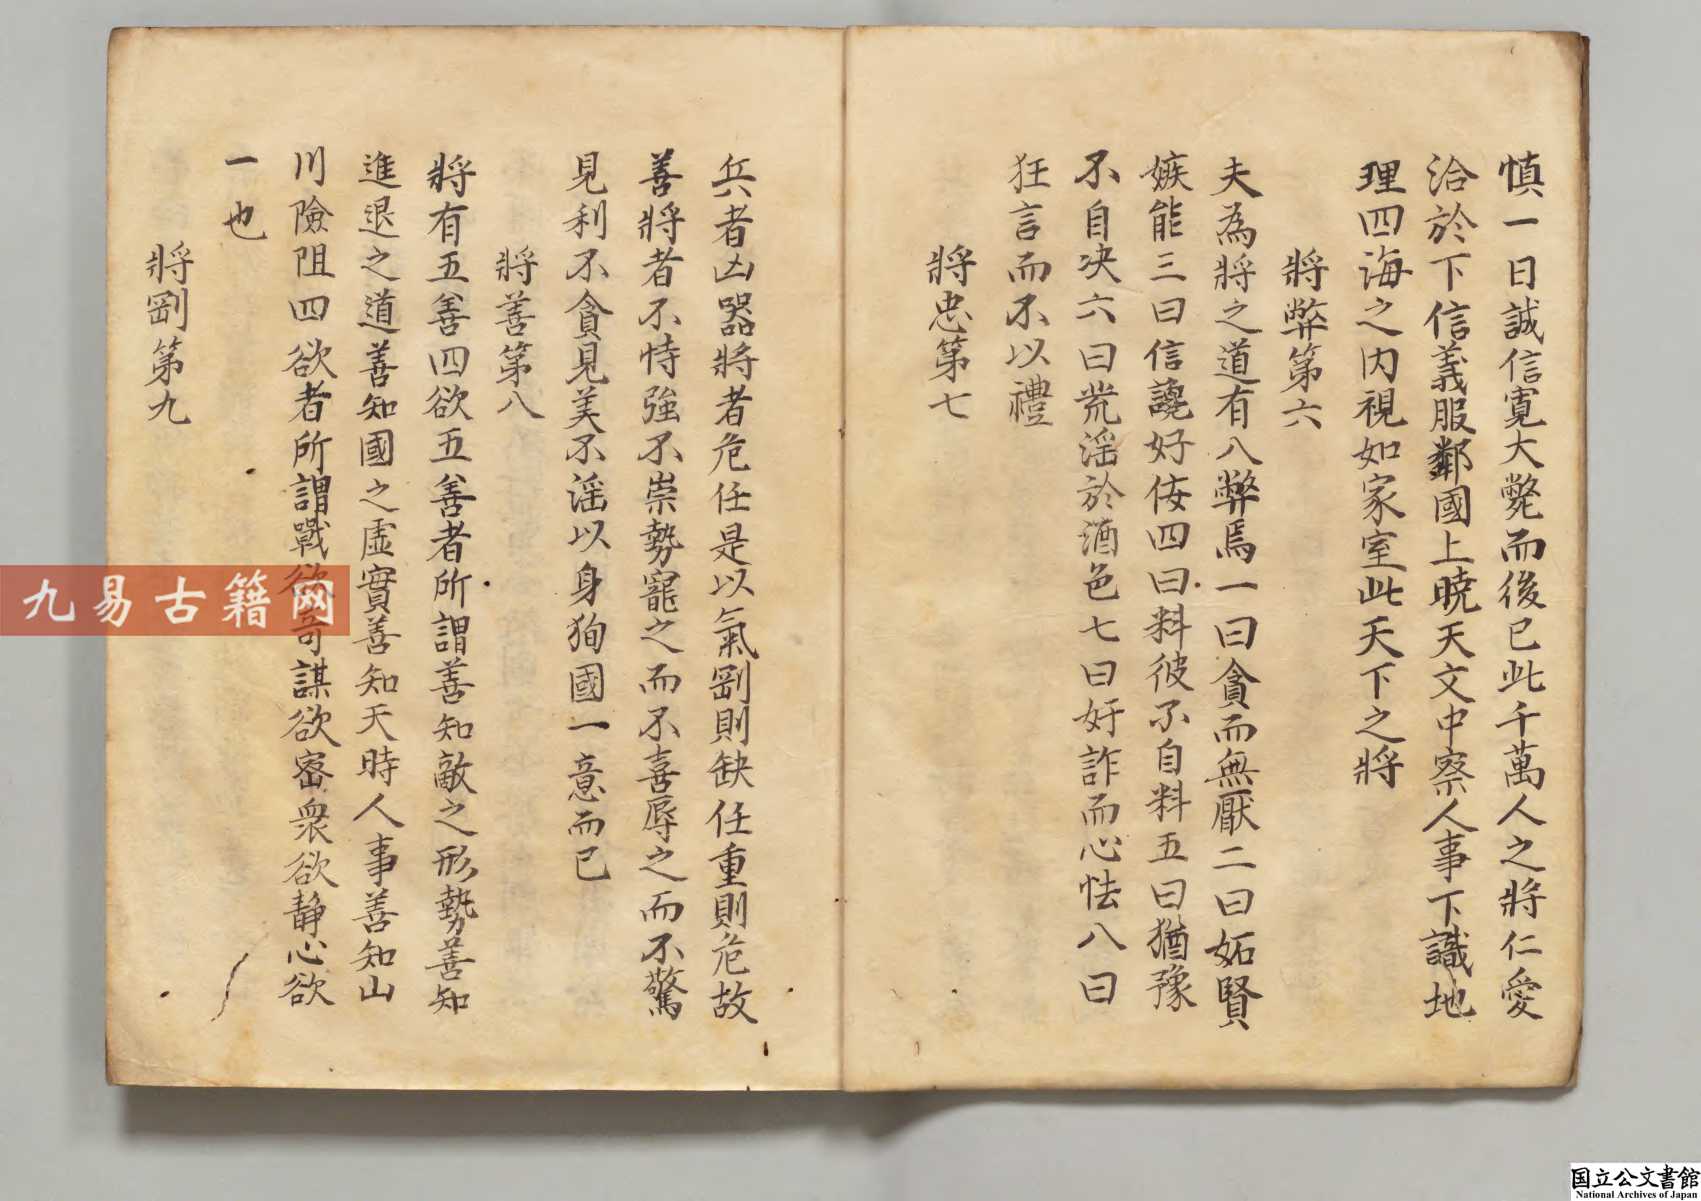 慎一日誠信寛大斃而後已此千萬人之將仁愛
洽於下信義服鄰國上暁天文中察人事下識地
理四海之内視如家室此天下之將
將弊第六
夫為將之道有八弊焉一曰貪而無厭二曰妬賢
嫉能三曰信讒好佞四曰料彼不自料五曰猶豫
不自决六曰荒滛於酒色七曰奸詐而心怯八曰
狂言而不以禮
將忠第七
兵者凶器將者危任是以氣剛則缺任重則危故
善將者不恃強不崇勢寵之而不喜辱之而不驚
見利不貪見美不滛以身狥國一意而已
將善第八
將有五善四欲五善者所謂善知敵之形勢善知
進退之道善知國之虚實善知天時人事善知山
川險阻四欲者所謂戰欲奇謀欲密衆欲静心欲
一也
將剛第九
九易古籍网
国立公文書館
National Archives of Japan